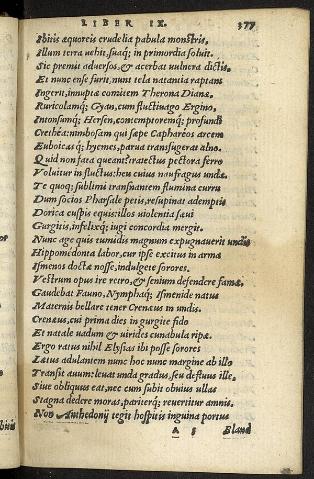 LIBER IX. 377
Ibitis æquoreis crudelia pabula monstris,
Illum terra uehit, suaq; in primordia soluit.
Sic premit aduersos, & acerbat uulnera dictis.
Et nunc ense furit, nunc tela natantia raptans
Ingerit, innuptæ comitem Therona Dianæ.
Ruricolamq; Gyan, cum fluctiuago Ergino,
Intonsumq; Hersen, contemptoremq; profundi
Crethea: nimbosam qui sæpe Caphareos arcem
Euboicasq; hyemes, parua transfugerat alno.
Quid non fata queant? traiectus pectora ferro
Voluitur in fluctus: heu cuius naufragus undæ.
Te quoq; sublimi transnantem flumina curru
Dum socios Pharsale petis, resupinat ademptis
Dorica cuspis equis: illos uiolentia sæui
Gurgitis, infelixq; iugi concordia mergit.
Nunc age quis tumidis magnum expugnauerit undis
Hippomedonta labor, cur ipse excitus in arma
Ismenos doctæ nosse, indulgete sorores.
Vestrum opus ire retro, & senium defendere famæ,
Gaudebat Fauno, Nymphaq; Ismenide natus
Maternis bellare tener Crenæus in undis.
Crenæus, cui prima dies in gurgite fido
Et natale uadum & uirides cunabula ripæ.
Ergo ratus nihil Elysias ibi posse sorores
Lætus adulantem nunc hoc nunc margine ab illo
Transit auum: leuat unda gradus, seu defluus ille,
Siue obliquus eat, nec cum subit obuius ullas
Stagna dedere moras, pariterq; reuertitur amnis.
Non Anthedonij tegit hospitis inguina pontus
A 5 Bland